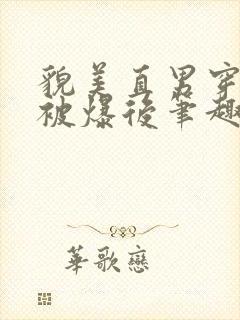 貌美直男穿
被爆後筆趣
華歌戀